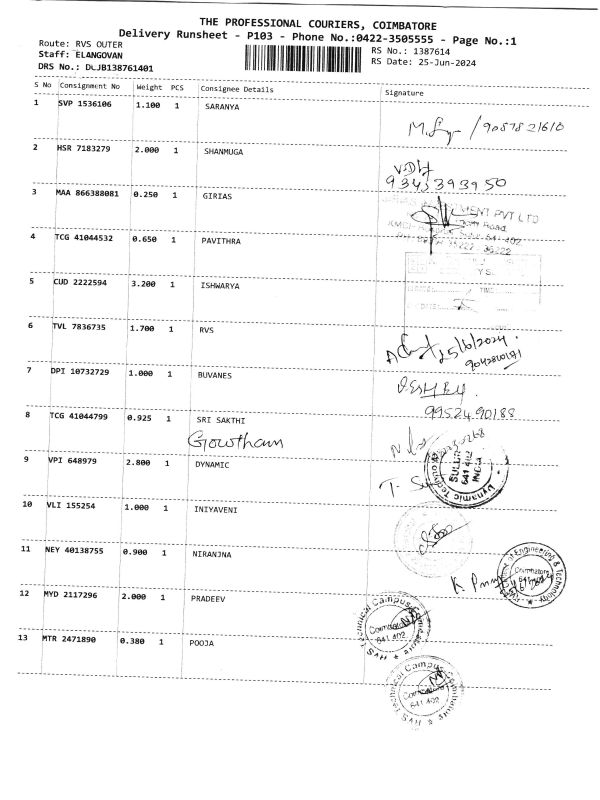 THE PROFESSIONAL COURIERS, COIMBATORE
Delivery Runsheet - P103 - Phone No.:0422-3505555 - Page No.:1
Route: RVS OUTER
RS No.: 1387614
Staff: ELANGOVAN
RS Date: 25-Jun-2024
DRS No.: DCJB138761401
S No Consignment No Weight PCS Consignee Details Signature
1 SVP 1536106 1.100 1 SARANYA
2 HSR 7183279 2.000 1 SHANMUGA
9345393950
3 MAA 866388081 0.250 1 GIRIAS
MENT PVT LTD
Road,
641 402
4 TCG 41044532 0.650 1 PAVITHRA
5 CUD 2222594 3.200 1 ISHWARYA
6 TVL 7836735 1.700 1 RVS
25/6/2024
7 DPI 10732729 1.000 1 BUVANES
99524 90188
8 TCG 41044799 0.925 1 SRI SAKTHI
Gowtham
9 VPI 648979 2.800 1 DYNAMIC
Dynamic Technologies
SULUR
641 402
INDIA
10 VLI 155254 1.000 1 INIYAVENI
11 NEY 40138755 0.900 1 NIRANJNA
of Engineering & Technology
Coimbatore
12 MYD 2117296 2.000 1 PRADEEV
Technical Campus
Coimbatore
641 402
13 MTR 2471890 0.380 1 POOJA
RVS Technical Campus Coimbatore
Coimbatore
641 402